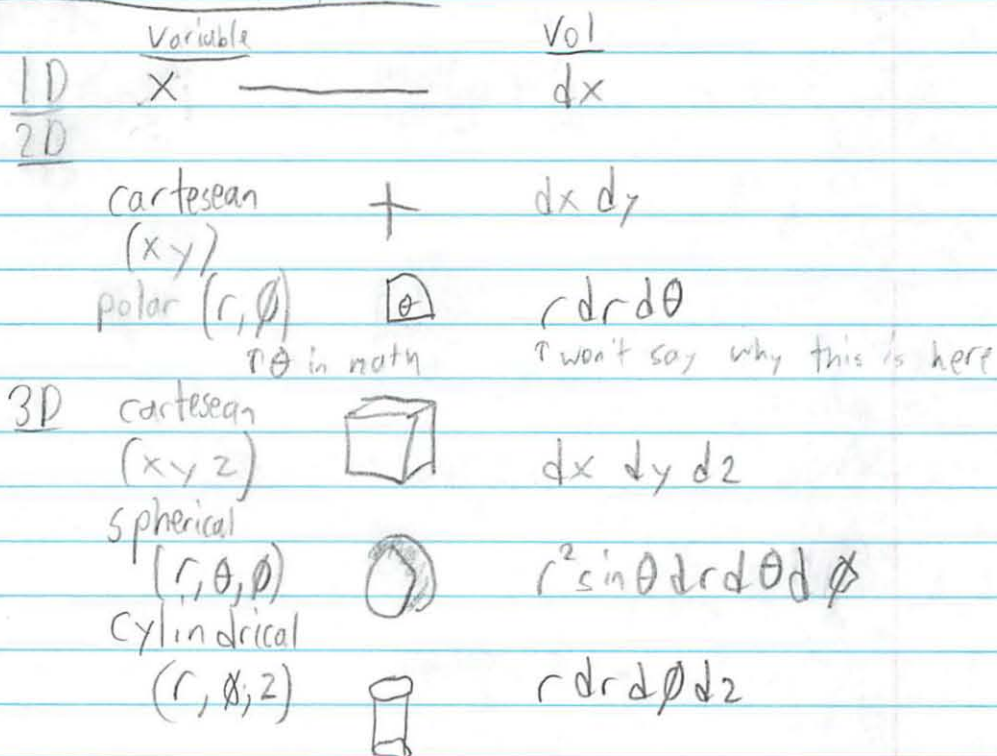 Variable Vol
1D X dx
2D
cartesean dx dy
(x y)
polar (r, ∅) θ r dr dθ
↑ θ in math ↑ won't say why this is here
3D cartesean
(x y z) dx dy dz
spherical
(r, θ, ∅) r² sin θ dr dθ d ∅
Cylindrical
(r, ∅, z) r dr d∅ dz